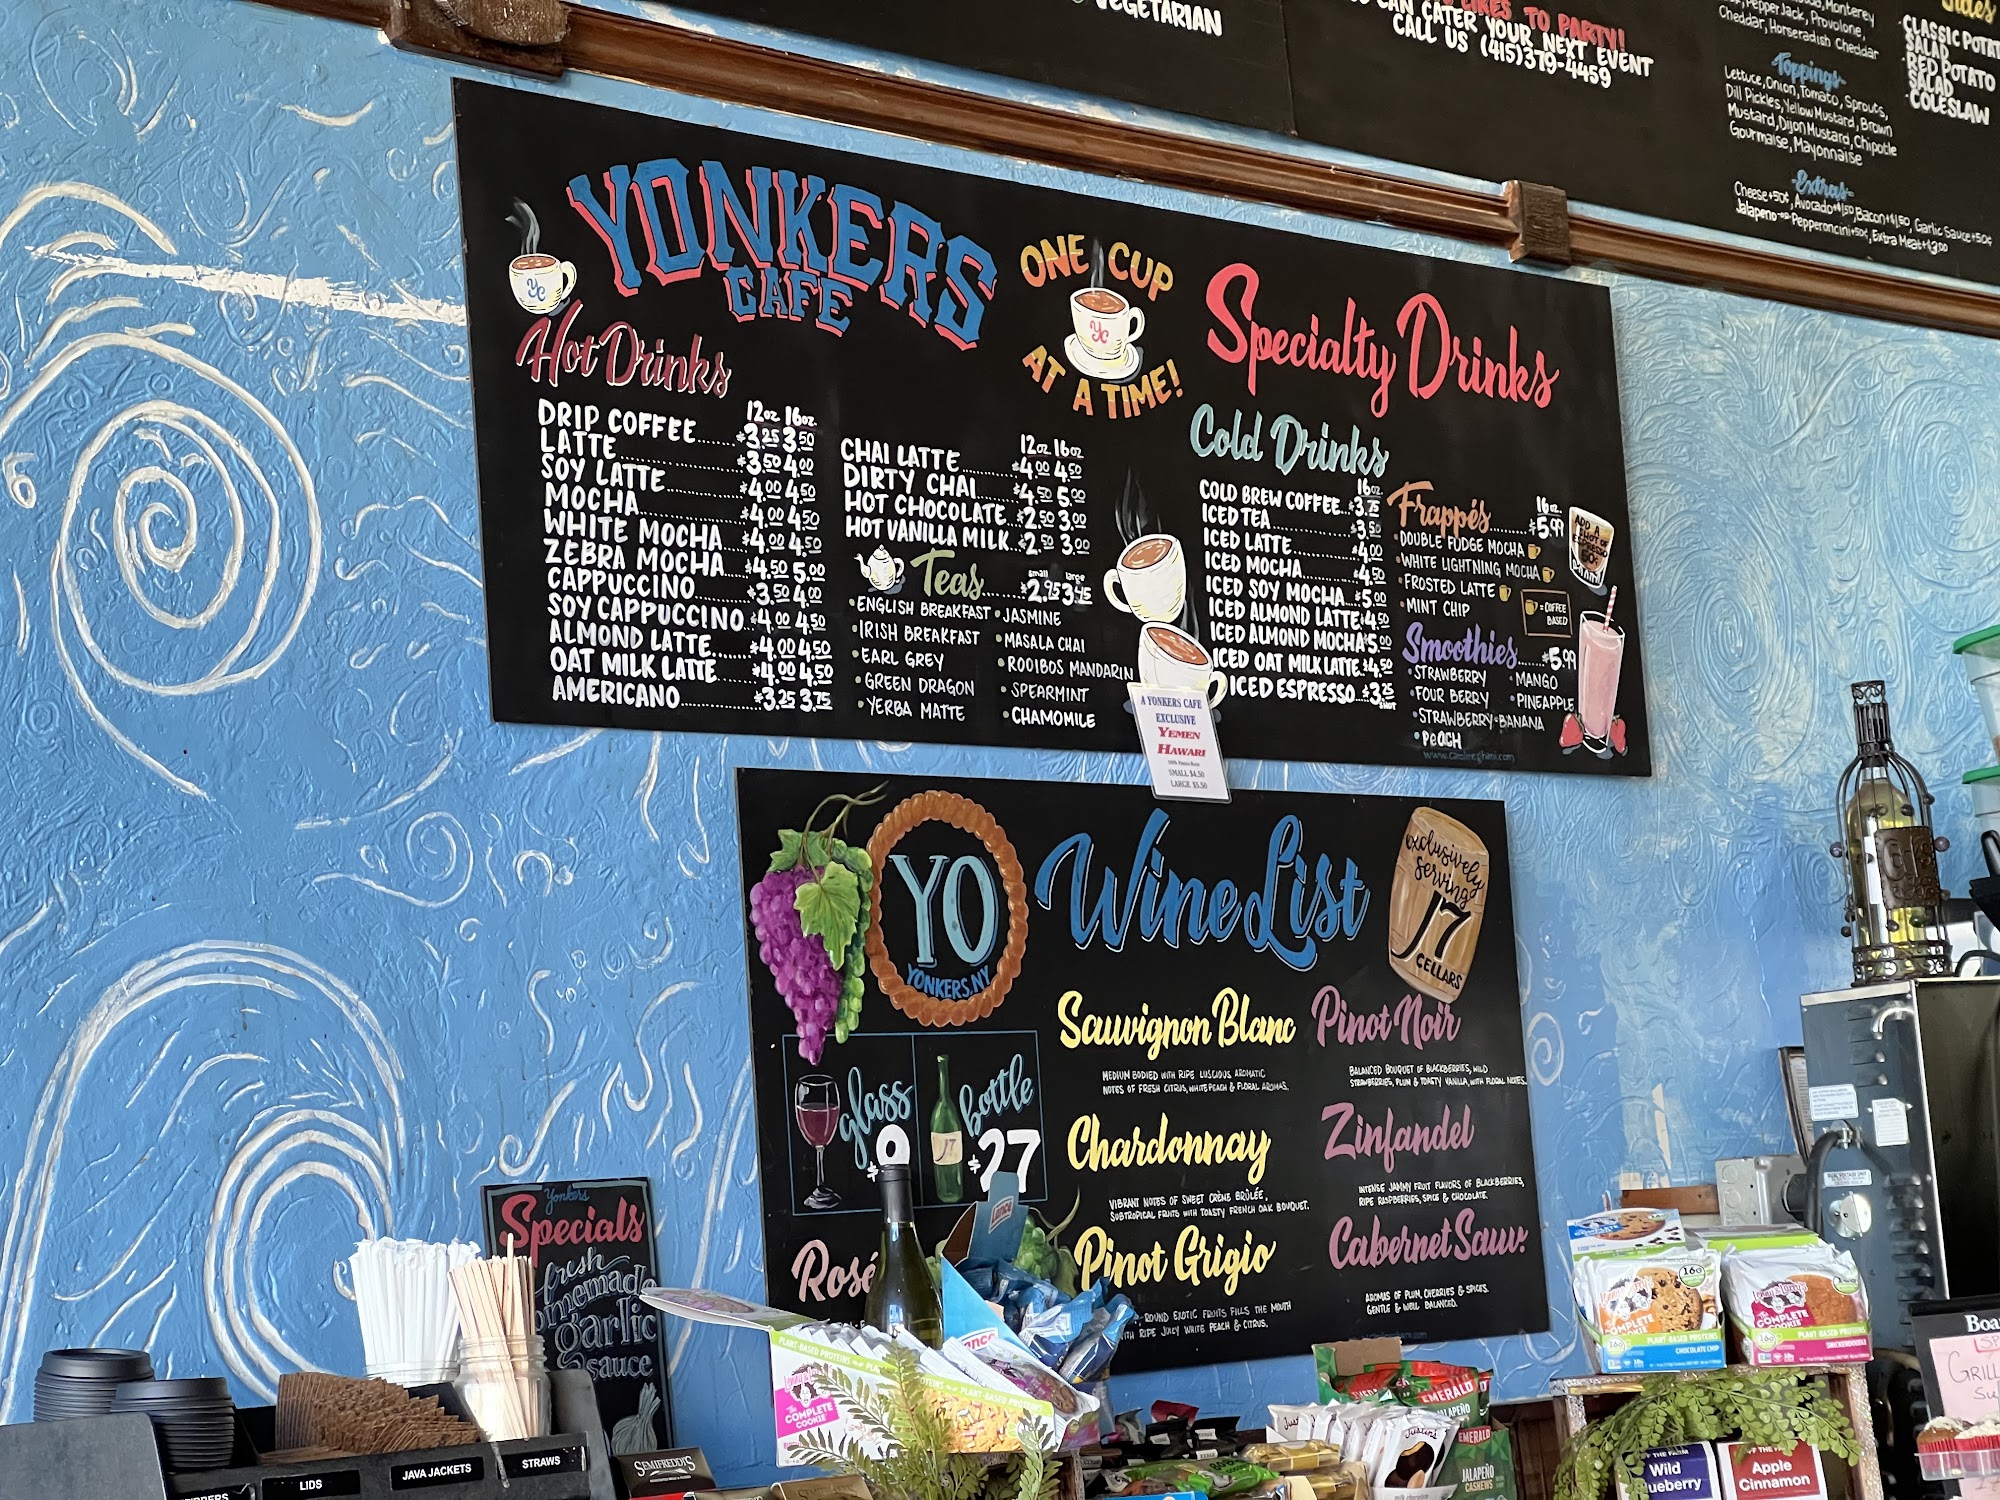 VEGETARIAN
LIKES TO PARTY!
CAN CATER YOUR NEXT EVENT
CALL US (415)379-4459
Monterey
PepperJack, Provolone,
Cheddar, Horseradish Cheddar
Toppings
Lettuce, Onion, Tomato, Sprouts,
Dill Pickles, Yellow Mustard, Brown
Mustard, Dijon Mustard, Chipotle
Gourmaise, Mayonnaise
Extras
Cheese+50¢, Avocado+$1.50, Bacon+$1.50, Garlic Sauce+50¢
Jalapeno or Pepperoncini+50¢, Extra Meat+$3.00
CLASSIC POTAT
SALAD
RED POTATO
SALAD
COLESLAW
YONKERS
CAFE
YC
Hot Drinks
12oz. 16oz.
DRIP COFFEE........$3.25 3.50
LATTE...............$3.50 4.00
SOY LATTE............$4.00 4.50
MOCHA...............$4.00 4.50
WHITE MOCHA...$4.00 4.50
ZEBRA MOCHA...$4.50 5.00
CAPPUCCINO.......$3.50 4.00
SOY CAPPUCCINO..$4.00 4.50
ALMOND LATTE.......$4.00 4.50
OAT MILK LATTE.....$4.00 4.50
AMERICANO............$3.25 3.75
ONE CUP
YC
AT A TIME!
12oz 16oz
CHAI LATTE..........$4.00 4.50
DIRTY CHAI......$4.50 5.00
HOT CHOCOLATE..$2.50 3.00
HOT VANILLA MILK..$2.50 3.00
Teas
small large
$2.95 3.45
•ENGLISH BREAKFAST
•IRISH BREAKFAST
•EARL GREY
•GREEN DRAGON
•YERBA MATTE
•JASMINE
•MASALA CHAI
•ROOIBOS MANDARIN
•SPEARMINT
•CHAMOMILE
Specialty Drinks
Cold Drinks
16oz.
COLD BREW COFFEE..$3.75
ICED TEA..............$3.50
ICED LATTE...........$4.00
ICED MOCHA..........$4.50
ICED SOY MOCHA....$5.00
ICED ALMOND LATTE.$4.50
ICED ALMOND MOCHA$5.00
ICED OAT MILK LATTE.$4.50
ICED ESPRESSO..$3.25
Frappés.......$5.99
16oz.
•DOUBLE FUDGE MOCHA
•WHITE LIGHTNING MOCHA
•FROSTED LATTE
•MINT CHIP
=COFFEE
BASED
ADD A
SHOT OF
ESPRESSO
50¢
Smoothies.....$5.99
•STRAWBERRY
•FOUR BERRY
•STRAWBERRY-BANANA
•PEACH
•MANGO
•PINEAPPLE
www.carolineghani.com
A YONKERS CAFE
EXCLUSIVE
YEMEN
HAWARI
SMALL $4.50
LARGE $5.50
YO
YONKERS, NY
Wine List
exclusively
serving
J7
CELLARS
glass
$9
bottle
$27
J7
Sauvignon Blanc
MEDIUM BODIED WITH RIPE LUSCIOUS AROMATIC
NOTES OF FRESH CITRUS, WHITE PEACH & FLORAL AROMAS.
Chardonnay
VIBRANT NOTES OF SWEET CRÈME BRÛLÉE,
SUBTROPICAL FRUITS WITH TOASTY FRENCH OAK BOUQUET.
Pinot Grigio
ROUND EXOTIC FRUITS FILLS THE MOUTH
WITH RIPE JUICY WHITE PEACH & CITRUS.
Pinot Noir
BALANCED BOUQUET OF BLACKBERRIES, WILD
STRAWBERRIES, PLUM & TOASTY VANILLA, WITH FLORAL NOTES.
Zinfandel
INTENSE JAMMY FRUIT FLAVORS OF BLACKBERRIES,
RIPE RASPBERRIES, SPICE & CHOCOLATE.
Cabernet Sauv.
AROMAS OF PLUM, CHERRIES & SPICES.
GENTLE & WELL BALANCED.
Rosé
Yonkers
Specials
fresh
homemade
garlic
sauce
LIDS
JAVA JACKETS
STRAWS
SEMIFREDDI'S
PLANT-BASED PROTEINS
The
COMPLETE
COOKIE
Justin's
EMERALD
JALAPEÑO
EMERALD
JALAPEÑO
CASHEWS
Lenny & Larry's
COMPLETE
COOKIE
16g
PLANT-BASED PROTEINS
CHOCOLATE CHIP
COMPLETE
COOKIE
16g
PLANT-BASED PROTEINS
SNICKERDOODLE
OFF THE FARM
Wild
Blueberry
OFF THE FARM
Apple
Cinnamon
Boa
GRILL